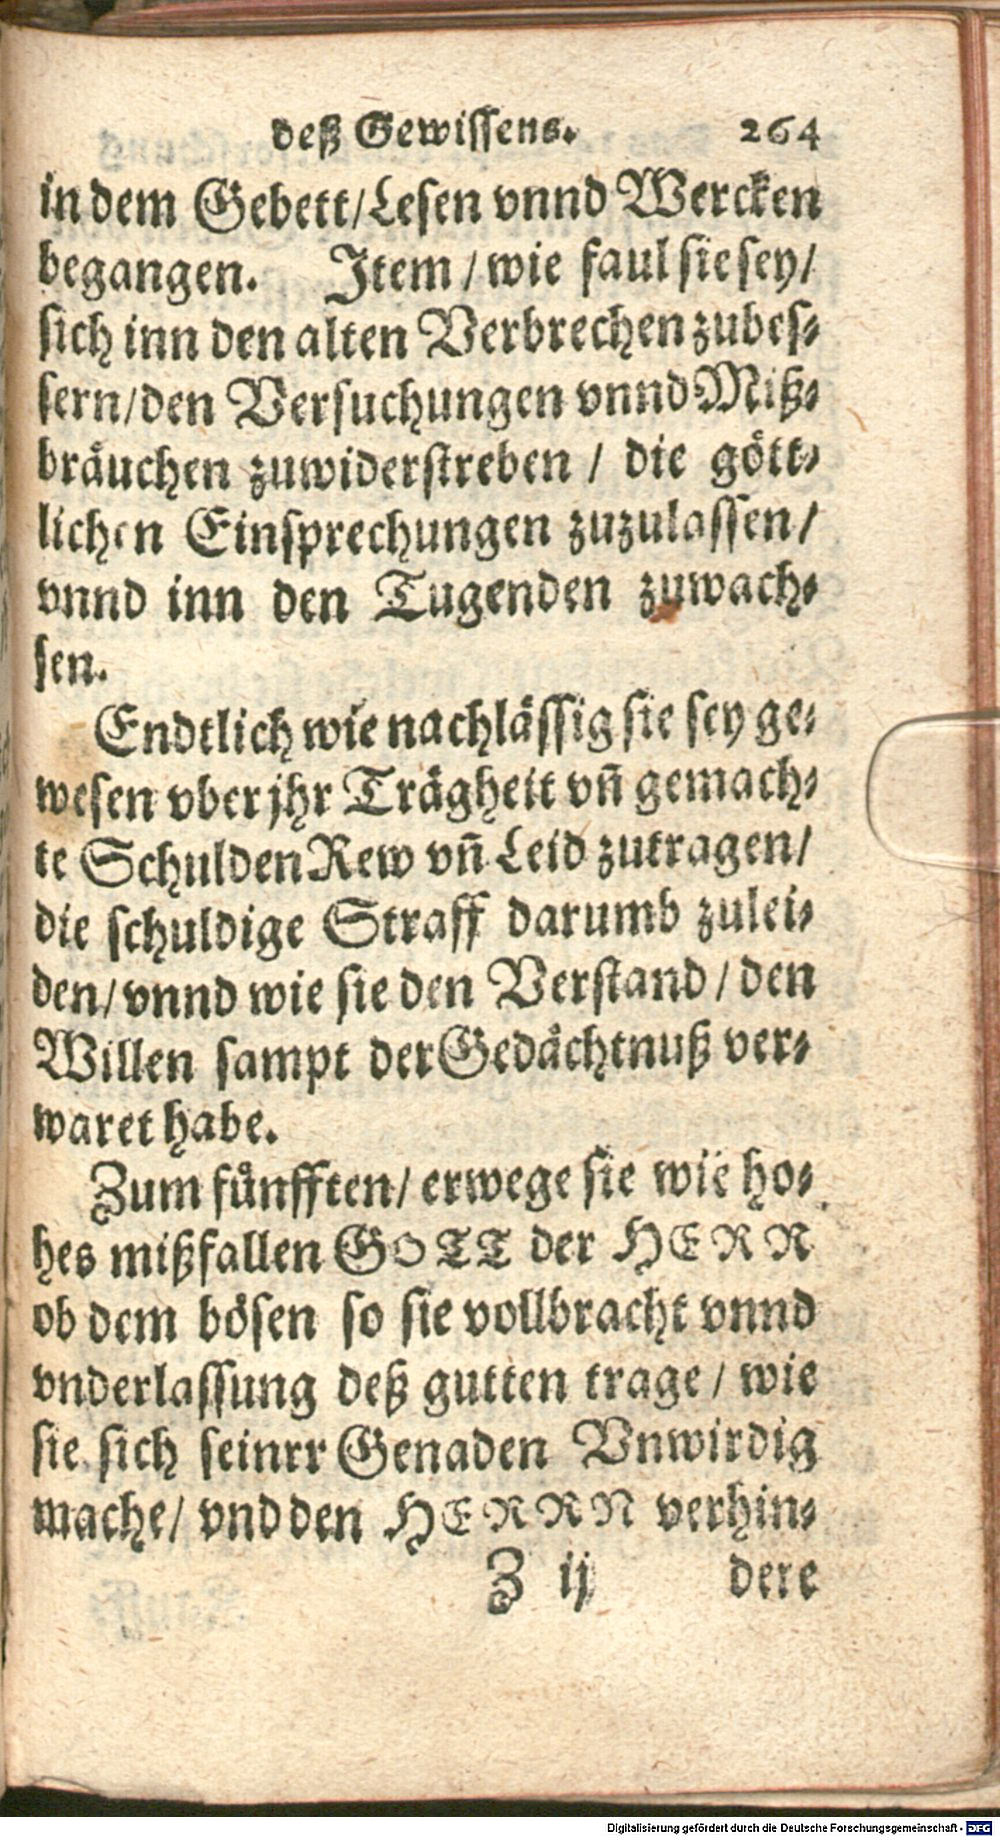 deß Gewissens. 264
in dem Gebett/Lesen vnnd Wercken
begangen. Item / wie faul sie sey/
sich inn den alten Verbrechen zubes-
sern/den Versuchungen vnnd Miß-
bräuchen zuwiderstreben / die gött-
lichen Einsprechungen zuzulassen/
vnnd inn den Tugenden zuwach-
sen.
Endtlich wie nachlässig sie sey ge-
wesen vber jhr Trägheit vñ gemach-
te Schulden Rew vñ Leid zutragen/
die schuldige Straff darumb zulei-
den/vnnd wie sie den Verstand / den
Willen sampt der Gedächtnuß ver-
waret habe.
Zum fünfften/ erwege sie wie ho-
hes mißfallen GOTT der HERR
ob dem bösen so sie vollbracht vnnd
vnderlassung deß gutten trage / wie
sie sich seinrr Genaden Vnwirdig
mache/ vnd den HERRN verhin-
Z ij dere
Digitalisierung gefördert durch die Deutsche Forschungsgemeinschaft - DFG